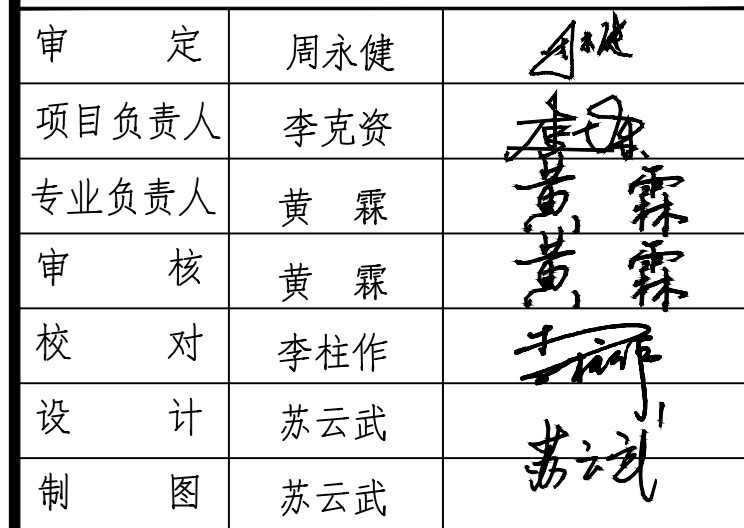 审 定 周永健 周永健
项目负责人 李克资
专业负责人 黄 霖 黄 霖
审 核 黄 霖 黄 霖
校 对 李柱作
设 计 苏云武 苏云武
制 图 苏云武